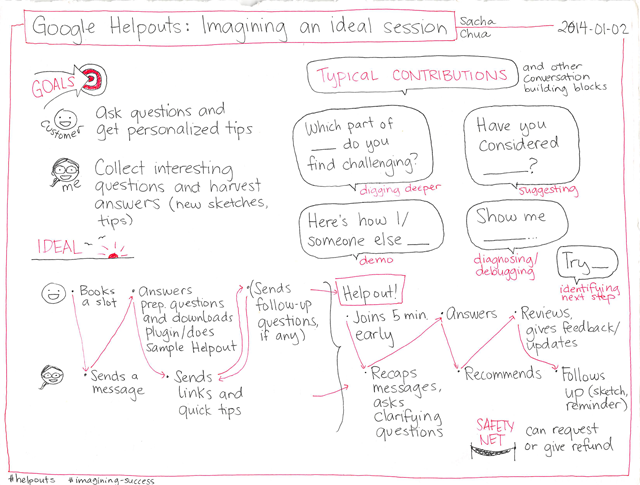 Google Helpouts: Imagining an ideal session
Sacha
Chua
2014-01-02
GOALS
customer
Ask questions and
get personalized tips
me
Collect interesting
questions and harvest
answers (new sketches,
tips)
TYPICAL CONTRIBUTIONS
and other
conversation
building blocks
Which part of
___ do you
find challenging?
digging deeper
Have you
considered
_____?
suggesting
Here's how I/
someone else ___
demo
Show me
_____...
diagnosing/
debugging
Try __
identifying
next step
IDEAL
• Books
a slot
• Answers
prep. questions
and downloads
plugin/does
sample Helpout
• (Sends
follow-up
questions,
if any)
• Sends a
message
• Sends
links and
quick tips
Helpout!
• Joins 5 min.
early
• Answers
• Reviews,
gives feedback/
updates
• Recaps
messages,
asks
clarifying
questions
• Recommends
• Follows
up (sketch,
reminder)
SAFETY
NET
can request
or give refund
#helpouts #imagining-success